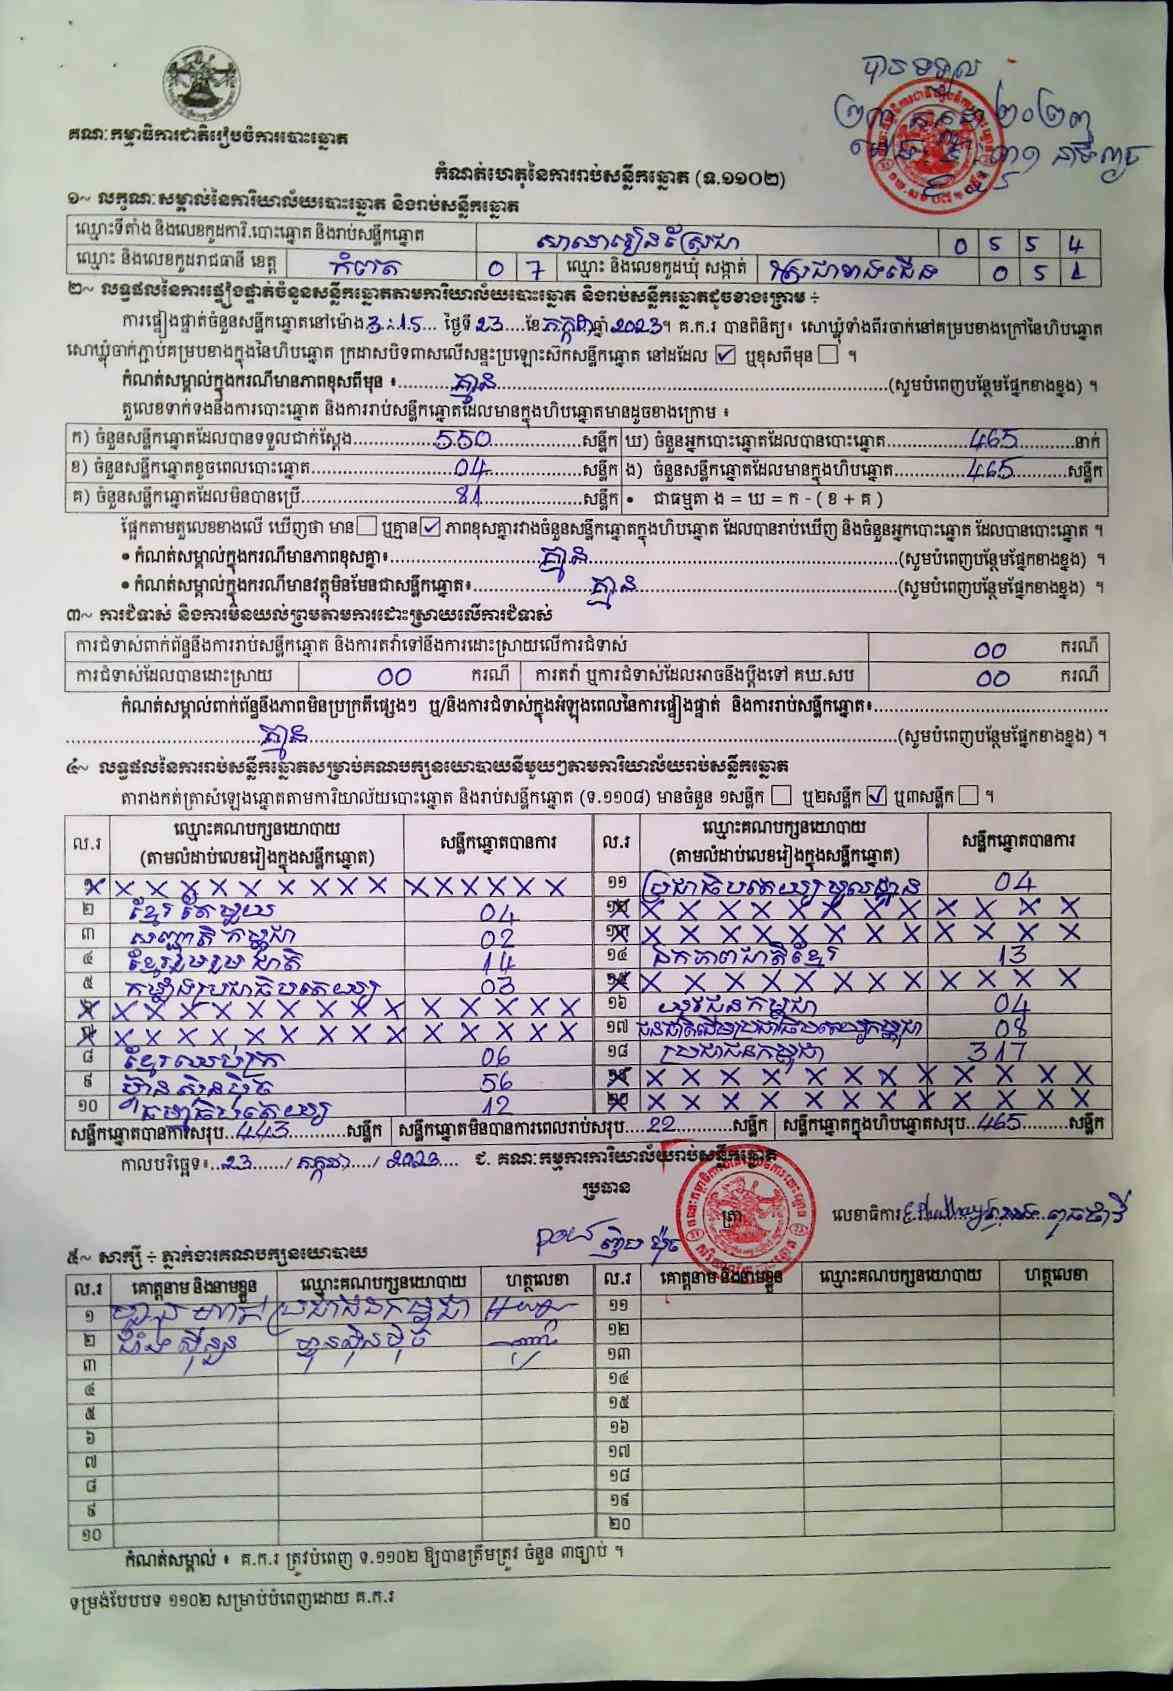 បានទទួល
គណៈកម្មាធិការជាតិរៀបចំការបោះឆ្នោត
កំណត់ហេតុនៃការរាប់សន្លឹកឆ្នោត (ទ.១១០២)
១~ លក្ខណៈសម្គាល់នៃការិយាល័យបោះឆ្នោត និងរាប់សន្លឹកឆ្នោត
ឈ្មោះទីតាំង និងលេខកូដការិ.បោះឆ្នោត និងរាប់សន្លឹកឆ្នោត សាលារៀនស្រែជា 0 5 5 4
ឈ្មោះ និងលេខកូដរាជធានី ខេត្ត កំពត 0 7 ឈ្មោះ និងលេខកូដឃុំ សង្កាត់ ស្រែជាខាងជើង 0 5 1
២~ លទ្ធផលនៃការផ្ទៀងផ្ទាត់ចំនួនសន្លឹកឆ្នោតតាមការិយាល័យបោះឆ្នោត និងរាប់សន្លឹកឆ្នោតដូចខាងក្រោម ÷
ការផ្ទៀងផ្ទាត់ចំនួនសន្លឹកឆ្នោតនៅម៉ោង 3:15 ថ្ងៃទី 23 ខែ កក្កដា ឆ្នាំ 2023។ គ.ក.រ បានពិនិត្យ៖ សោឃ្លុំទាំងពីរចាក់នៅគម្របខាងក្រៅនៃហិបឆ្នោត
សោឃ្លុំចាក់ភ្ជាប់គម្របខាងក្នុងនៃហិបឆ្នោត ក្រដាសបិទពាសលើសន្ទះប្រឡោះស៊កសន្លឹកឆ្នោត នៅដដែល ☑ ឬខុសពីមុន ☐ ។
កំណត់សម្គាល់ក្នុងករណីមានភាពខុសពីមុន ៖ គ្មាន (សូមបំពេញបន្ថែមផ្នែកខាងខ្នង) ។
តួលេខទាក់ទងនឹងការបោះឆ្នោត និងការរាប់សន្លឹកឆ្នោតដែលមានក្នុងហិបឆ្នោតមានដូចខាងក្រោម ៖
ក) ចំនួនសន្លឹកឆ្នោតដែលបានទទួលជាក់ស្តែង 550 សន្លឹក ឃ) ចំនួនអ្នកបោះឆ្នោតដែលបានបោះឆ្នោត 465 នាក់
ខ) ចំនួនសន្លឹកឆ្នោតខូចពេលបោះឆ្នោត 04 សន្លឹក ង) ចំនួនសន្លឹកឆ្នោតដែលមានក្នុងហិបឆ្នោត 465 សន្លឹក
គ) ចំនួនសន្លឹកឆ្នោតដែលមិនបានប្រើ 81 សន្លឹក • ជាធម្មតា ង = ឃ = ក - ( ខ + គ )
ផ្អែកតាមតួលេខខាងលើ ឃើញថា មាន ☐ ឬគ្មាន ☑ ភាពខុសគ្នារវាងចំនួនសន្លឹកឆ្នោតក្នុងហិបឆ្នោត ដែលបានរាប់ឃើញ និងចំនួនអ្នកបោះឆ្នោត ដែលបានបោះឆ្នោត ។
• កំណត់សម្គាល់ក្នុងករណីមានភាពខុសគ្នា៖ គ្មាន (សូមបំពេញបន្ថែមផ្នែកខាងខ្នង) ។
• កំណត់សម្គាល់ក្នុងករណីមានវត្ថុមិនមែនជាសន្លឹកឆ្នោត៖ គ្មាន (សូមបំពេញបន្ថែមផ្នែកខាងខ្នង) ។
៣~ ការជំទាស់ និងការមិនយល់ព្រមតាមការដោះស្រាយលើការជំទាស់
ការជំទាស់ពាក់ព័ន្ធនឹងការរាប់សន្លឹកឆ្នោត និងការតវ៉ាទៅនឹងការដោះស្រាយលើការជំទាស់ 00 ករណី
ការជំទាស់ដែលបានដោះស្រាយ 00 ករណី ការតវ៉ា ឬការជំទាស់ដែលអាចនឹងប្តឹងទៅ គឃ.សប 00 ករណី
កំណត់សម្គាល់ពាក់ព័ន្ធនឹងភាពមិនប្រក្រតីផ្សេងៗ ឬ/និងការជំទាស់ក្នុងអំឡុងពេលនៃការផ្ទៀងផ្ទាត់ និងការរាប់សន្លឹកឆ្នោត៖
គ្មាន (សូមបំពេញបន្ថែមផ្នែកខាងខ្នង) ។
៤~ លទ្ធផលនៃការរាប់សន្លឹកឆ្នោតសម្រាប់គណបក្សនយោបាយនីមួយៗតាមការិយាល័យរាប់សន្លឹកឆ្នោត
តារាងកត់ត្រាសំឡេងឆ្នោតតាមការិយាល័យបោះឆ្នោត និងរាប់សន្លឹកឆ្នោត (ទ.១១០៨) មានចំនួន ១សន្លឹក ☐ ឬ២សន្លឹក ☑ ឬ៣សន្លឹក ☐ ។
ល.រ ឈ្មោះគណបក្សនយោបាយ (តាមលំដាប់លេខរៀងក្នុងសន្លឹកឆ្នោត) សន្លឹកឆ្នោតបានការ ល.រ ឈ្មោះគណបក្សនយោបាយ (តាមលំដាប់លេខរៀងក្នុងសន្លឹកឆ្នោត) សន្លឹកឆ្នោតបានការ
១ X X X X X X X X X X X X X X X ១១ ប្រជាធិបតេយ្យមូលដ្ឋាន 04
២ ខ្មែរតែមួយ 04 ១២ X X X X X X X X X X X
៣ សញ្ជាតិកម្ពុជា 02 ១៣ X X X X X X X X X X X
៤ ខ្មែររួបរួមជាតិ 14 ១៤ ឯកភាពជាតិខ្មែរ 13
៥ កម្លាំងប្រជាធិបតេយ្យ 03 ១៥ X X X X X X X X X X X
៦ X X X X X X X X X X X X X ១៦ យុវជនកម្ពុជា 04
៧ X X X X X X X X X X X X X ១៧ ជនជាតិដើមប្រជាធិបតេយ្យកម្ពុជា 08
៨ ខ្មែរឈប់ក្រ 06 ១៨ ប្រជាជនកម្ពុជា 317
៩ ហ្វ៊ុនស៊ិនប៉ិច 56 ១៩ X X X X X X X X X X X
១០ ធម្មាធិបតេយ្យ 12 ២០ X X X X X X X X X X X
សន្លឹកឆ្នោតបានការសរុប 443 សន្លឹក សន្លឹកឆ្នោតមិនបានការពេលរាប់សរុប 22 សន្លឹក សន្លឹកឆ្នោតក្នុងហិបឆ្នោតសរុប 465 សន្លឹក
កាលបរិច្ឆេទ៖ 23 / កក្កដា / 2023 ជ. គណៈកម្មការការិយាល័យរាប់សន្លឹកឆ្នោត
ប្រធាន
ត្រា
លេខាធិការ
៥~ សាក្សី ÷ ភ្នាក់ងារគណបក្សនយោបាយ
ល.រ គោត្តនាម និងនាមខ្លួន ឈ្មោះគណបក្សនយោបាយ ហត្ថលេខា ល.រ គោត្តនាម និងនាមខ្លួន ឈ្មោះគណបក្សនយោបាយ ហត្ថលេខា
១ ប្រជាជនកម្ពុជា ១១
២ ហ្វ៊ុនស៊ិនប៉ិច ១២
៣ ១៣
៤ ១៤
៥ ១៥
៦ ១៦
៧ ១៧
៨ ១៨
៩ ១៩
១០ ២០
កំណត់សម្គាល់ ៖ គ.ក.រ ត្រូវបំពេញ ទ.១១០២ ឱ្យបានត្រឹមត្រូវ ចំនួន ៣ច្បាប់ ។
ទម្រង់បែបបទ ១១០២ សម្រាប់បំពេញដោយ គ.ក.រ